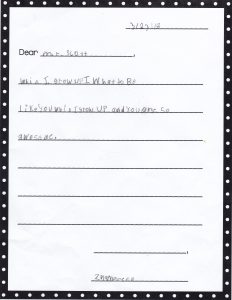 3/23/18
Dear Mr. Scott,
when I grow up I What to Be
Like You when I grow UP and You are so
awesome.